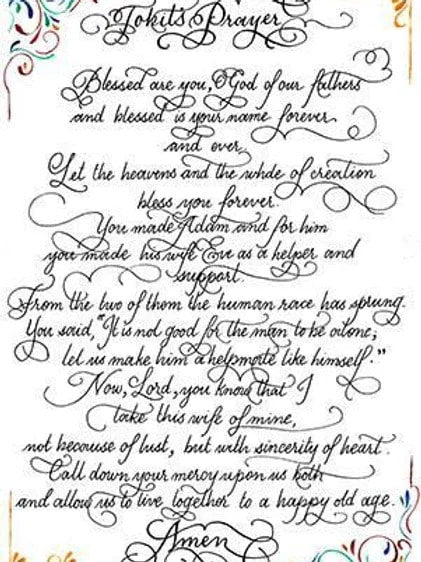 Tobit's Prayer
Blessed are you, O God of our fathers
and blessed is your name forever
and ever.
Let the heavens and the whole of creation
bless you forever.
You made Adam and for him
you made his wife Eve as a helper and
support.
From the two of them the human race has sprung.
You said, "It is not good for the man to be alone;
let us make him a helpmate like himself."
Now, Lord, you know that I
take this wife of mine,
not because of lust, but with sincerity of heart.
Call down your mercy upon us both
and allow us to live together to a happy old age.
Amen